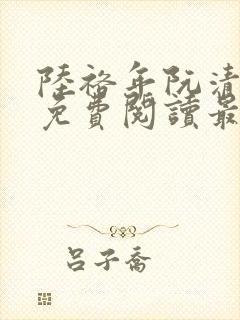 陸裕年阮清
免費閱讀最
呂子喬